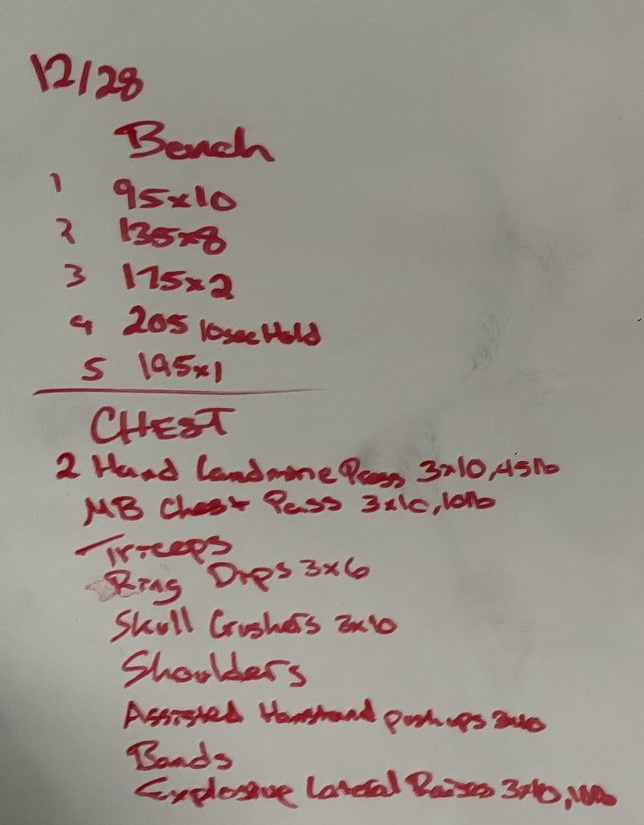 12/28
Bench
1 95x10
2 135x8
3 175x2
4 205 10sec Hold
5 195x1
CHEST
2 Hand Landmine Press 3x10, 45lb
MB Chest Pass 3x10, 10lb
Triceps
Ring Dips 3x6
Skull Crushers 3x10
Shoulders
Assisted Hanstand pushups 3x10
Bands
Explosive Lateral Raises 3x10, 10lb